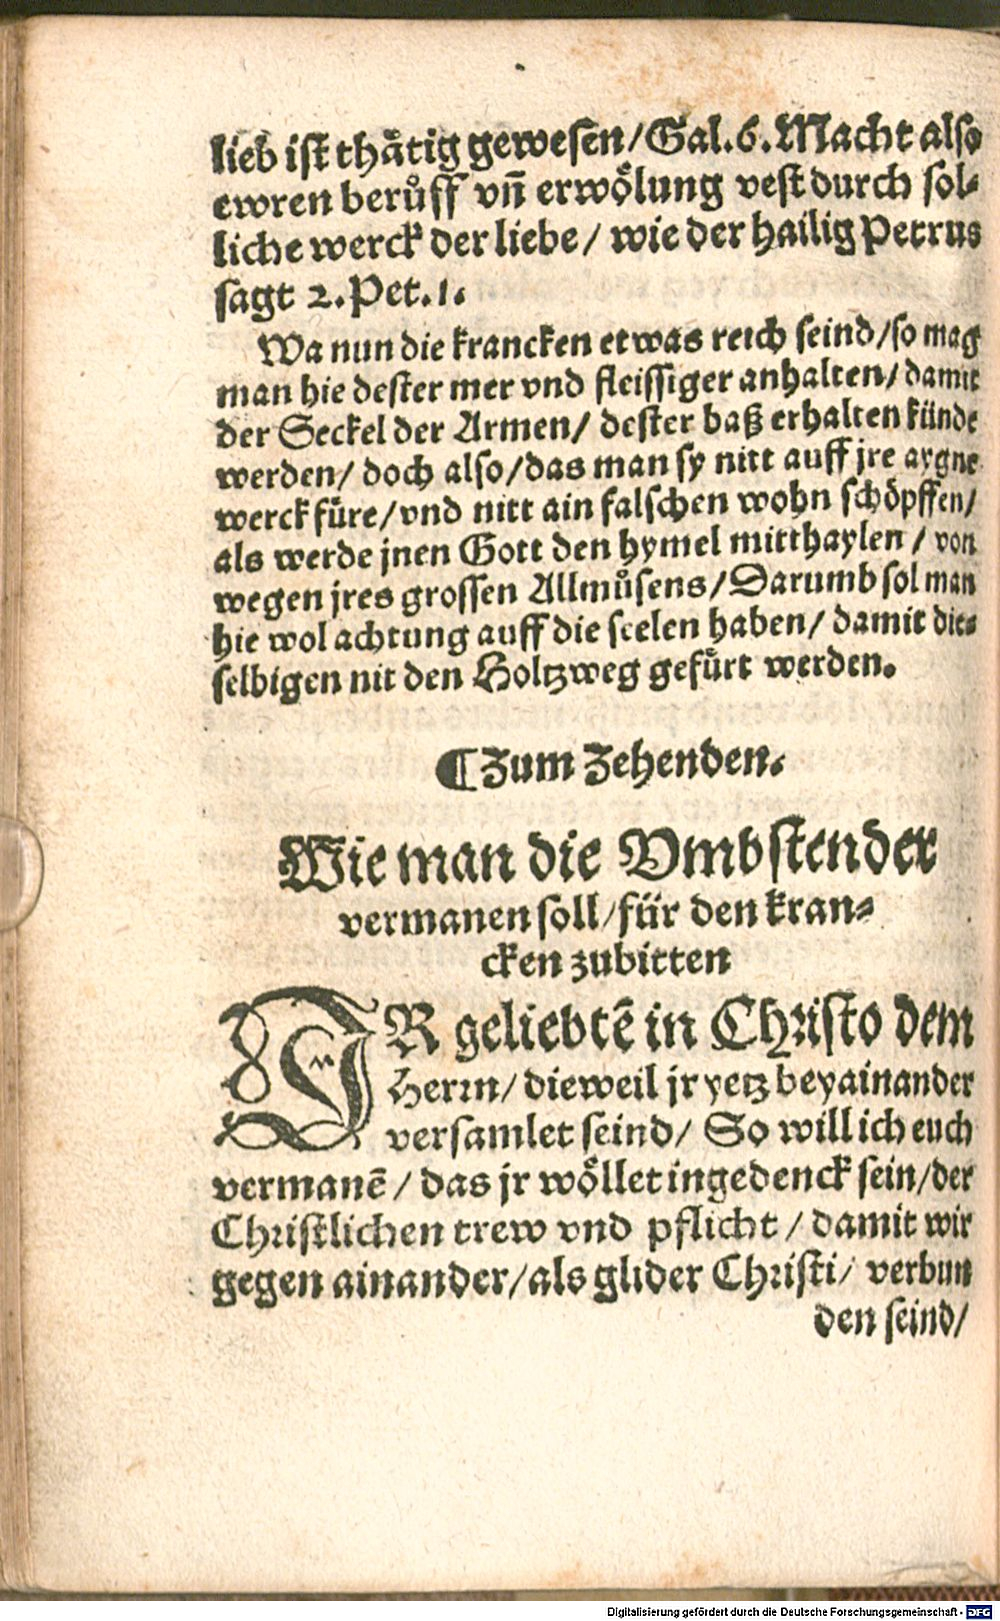 lieb ist thaͤtig gewesen/Gal.6.Macht also
ewren beruͦff vñ erwoͤlung vest durch sol⸗
liche werck der liebe/ wie der hailig Petrus
sagt 2.Pet.1.
Wa nun die krancken etwas reich seind/so mag
man hie dester mer vnd fleissiger anhalten/damit
der Seckel der Armen/ dester baß erhalten künde
werden/ doch also/das man sy nitt auff jre aygne
werck füre/vnd nitt ain falschen wohn schöpffen/
als werde jnen Gott den hymel mitthaylen/ von
wegen jres grossen Allmuͦsens/Darumb sol man
hie wol achtung auff die seelen haben/ damit die⸗
selbigen nit den Holtzweg gefuͤrt werden.
¶Zum Zehenden.
Wie man die Vmbstender
vermanen soll/für den kran⸗
cken zubitten
IR geliebtẽ in Christo dem
Herrn/ dieweil jr yetz beyainander
versamlet seind/ So will ich euch
vermanẽ/ das jr woͤllet ingedenck sein/der
Christlichen trew vnd pflicht/ damit wir
gegen ainander/als glider Christi/ verbun
den seind/
Digitalisierung gefördert durch die Deutsche Forschungsgemeinschaft - DFG